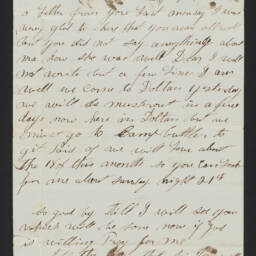 a letter from you last monday I was
very glad to hear that you were all well
but you did not say anything about
ma how she was well Dear I will
not write but a few lines I am
well we come to Dallas yesterday
we will be musterout in a few
days now here in Dallas but we
must go to Camp butler to
get paid of we will leave about
the 18th of this month so you can look
for me about sunday night 21st
So good by till I will see you
which will be soon now if god
is willing Pray for me